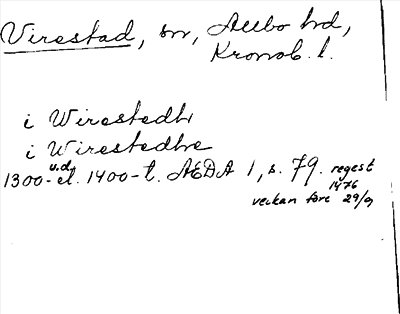 Virestad, sn, Allbo hd,
Kronob. l.
i Wirestedh
i Wirestedhe
u.d.
1300- el. 1400-t. ÆDA 1, s. 79. regest
1476
veckan före 29/9